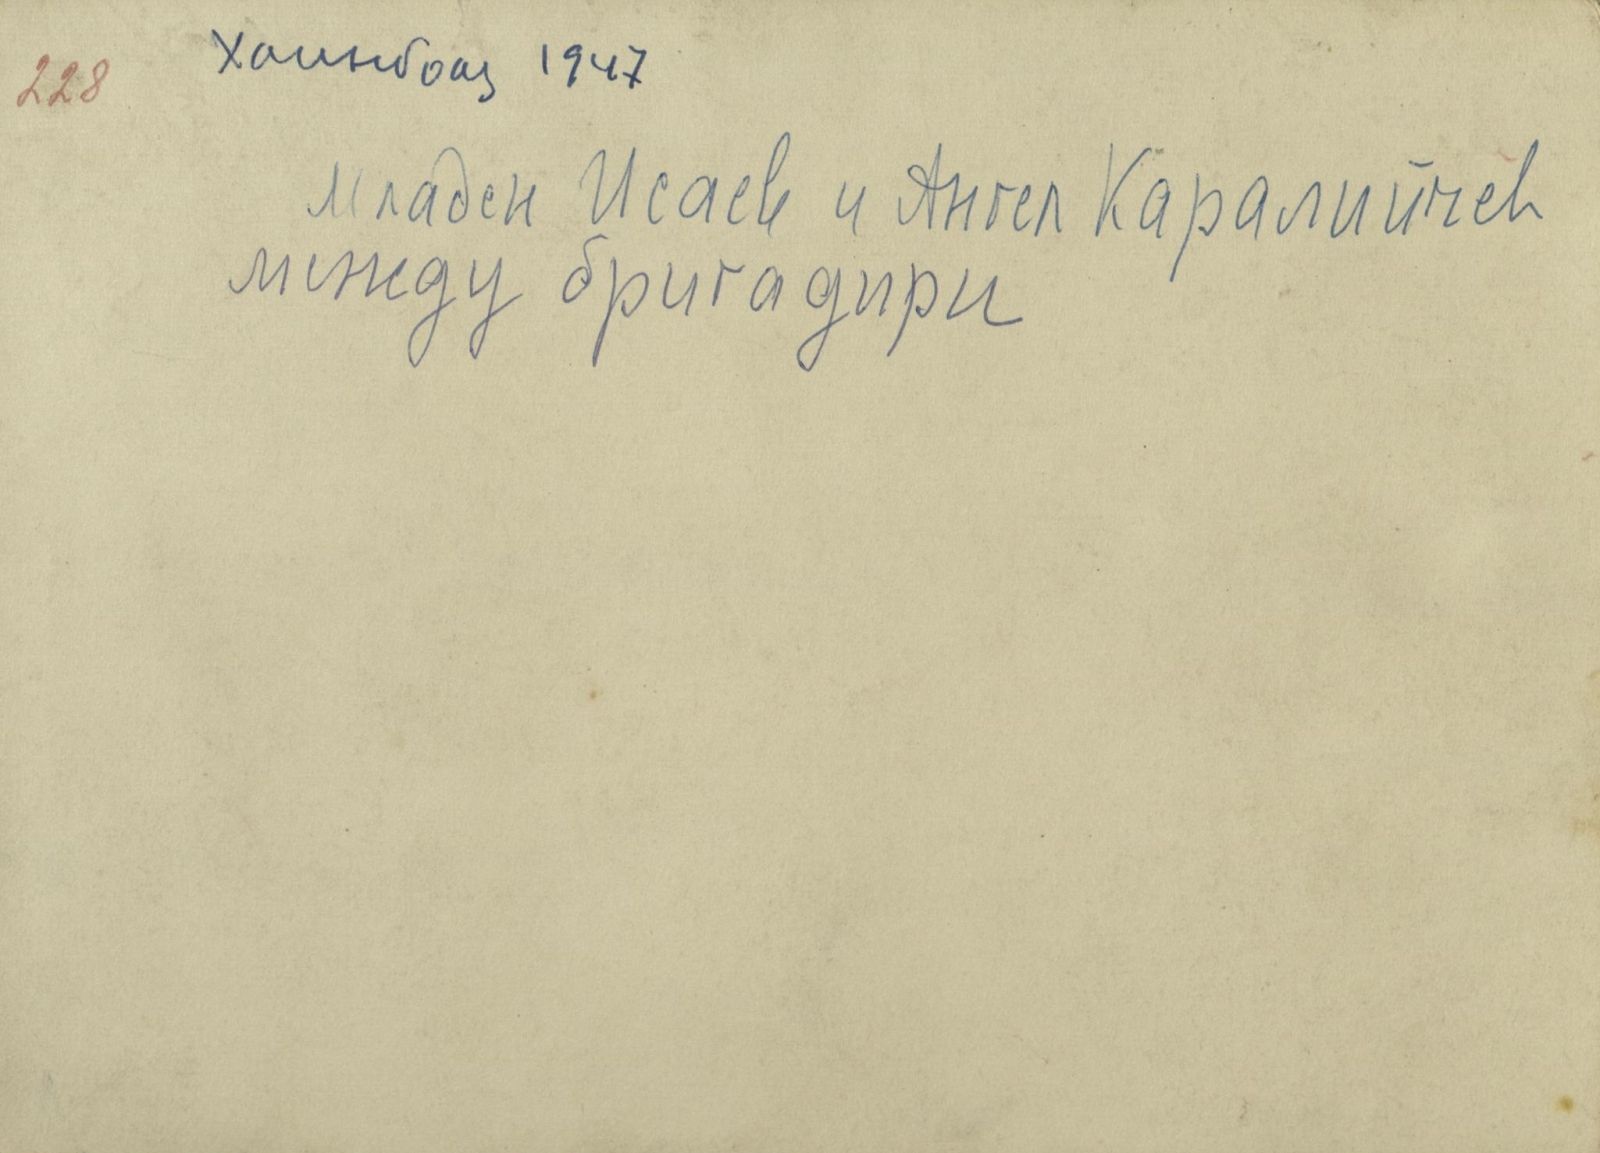 228
Хаинбоаз 1947
Младен Исаев и Ангел Каралийчев
между бригадири